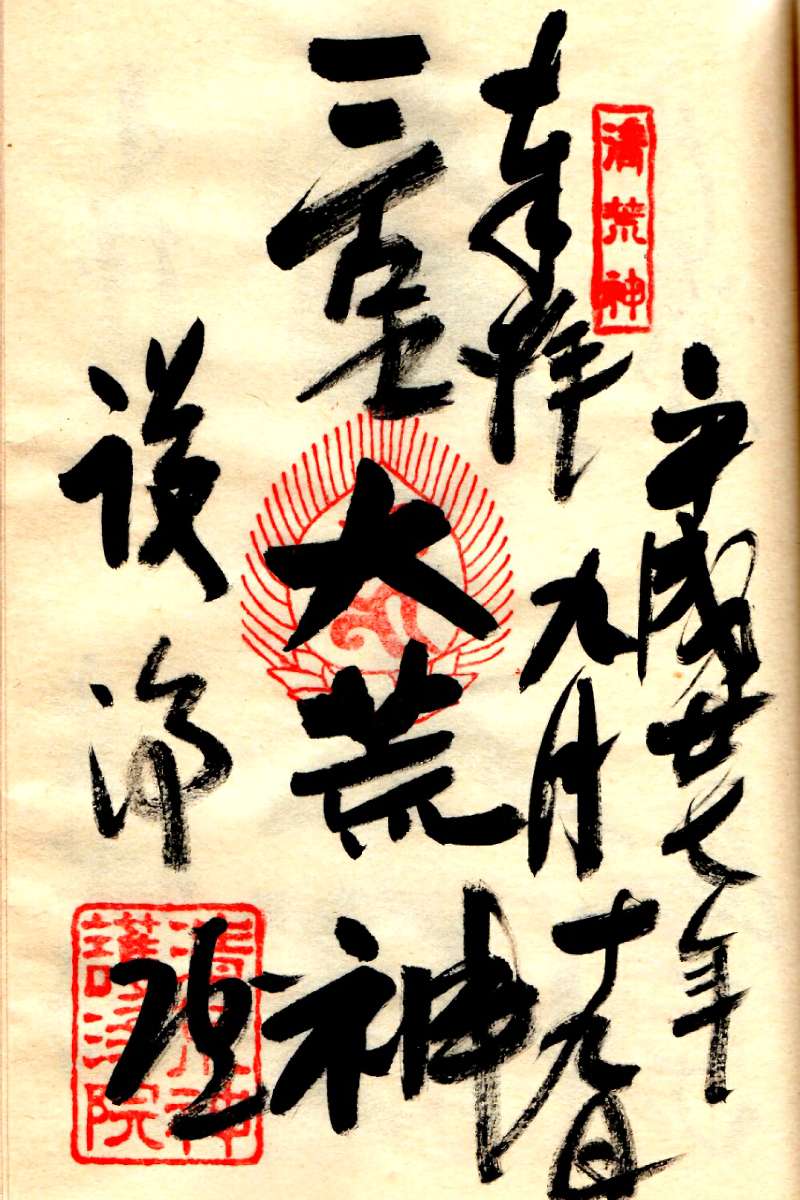 清荒神
平成廿七年
九月十九日
奉拝
三宝大荒神
護浄院
清荒神
護浄院